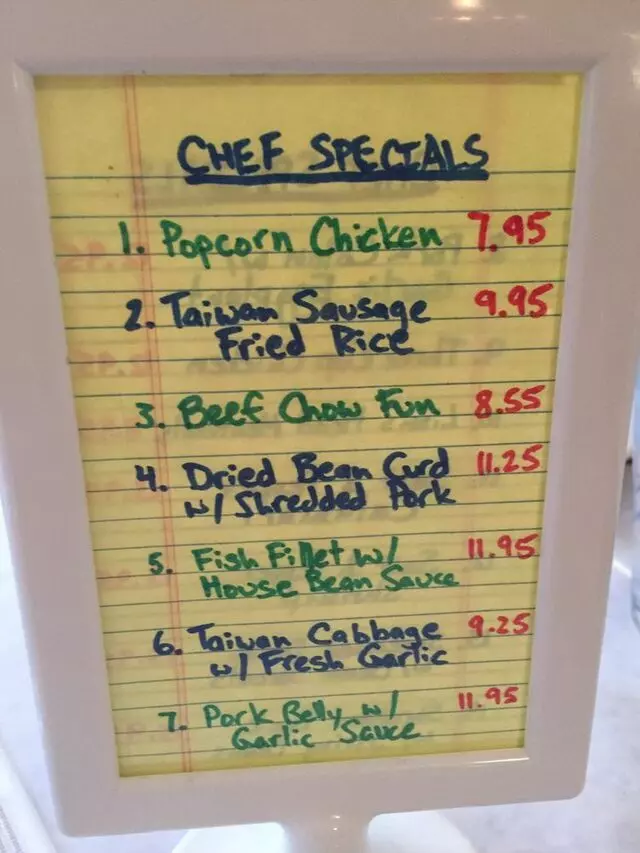 CHEF SPECIALS
1. Popcorn Chicken 7.95
2. Taiwan Sausage 9.95
Fried Rice
3. Beef Chow Fun 8.55
4. Dried Bean Curd 11.25
w/ Shredded Pork
5. Fish Fillet w/ 11.95
House Bean Sauce
6. Taiwan Cabbage 9.25
w/ Fresh Garlic
7. Pork Belly w/ 11.95
Garlic Sauce